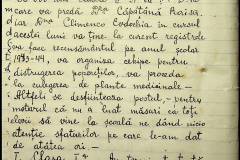 care va preda Dna Căpitână Raisa.
diar Dna Climenco Eudochia în cursul
acestei luni va ține la curent registrele
Se va face recensământul pe anul școlar
1943-44, va organiza echipe pentru
distrugerea popândăilor, va proceda
la culegerea de plante medicinale -
altfel se desființează postul, - pentru
motivul că nu a luat măsuri ca toți
elevii să vină la școală ne dând nicio
atenție sfaturilor pe care le-am dat
de atâtea ori -